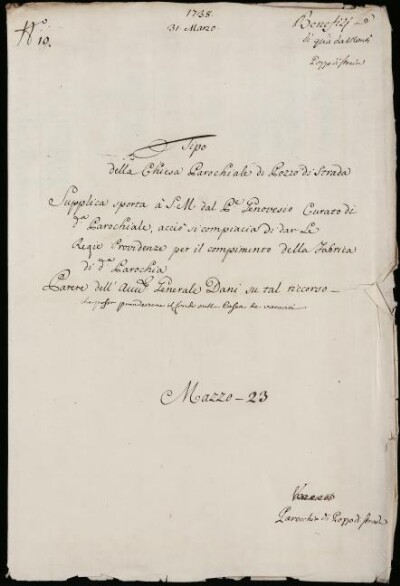 1738.
31 Marzo
N.° 19.
Benefizi
di quà da Monti
Pozzo di Strada
Tipo
della Chiesa Parochiale di Pozzo di Strada
Supplica sporta à S. M. dal P.e Genovesio Curato di
d.a Parochiale, acciò si compiaccia di dar Le
Regie Providenze per il compimento della Fabrica
di d.a Parochia
Parere dell' Avv.o Generale Dani su tal ricorso –
il fondo sulla Cassa de vacanti
Mazzo – 23
Parochia di Pozzo di Strada